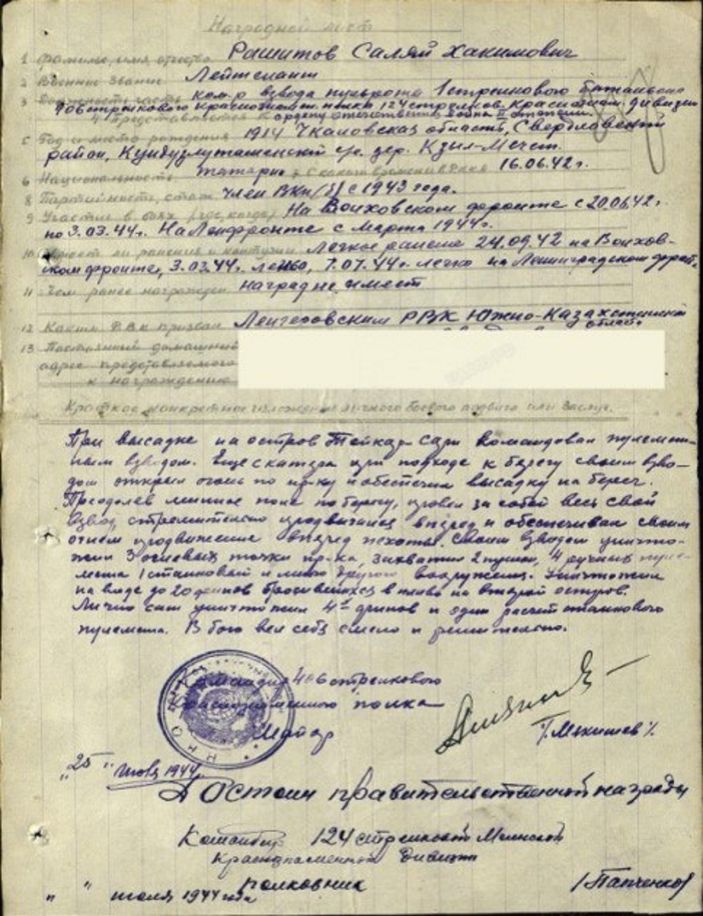 Наградной лист
1 Фамилия, имя, отчество Рашитов Саляй Хакимович
2 Военное звание Лейтенант
3 Должность, часть ком-р взвода пульроты 1 стрелкового батальона
406 стрелкового краснознам. полка 124 стрелков. краснознам. дивизии
4 Представляется к ордену отечественная война II степени.
5 Год и место рождения 1914 Чкаловская область, Свердловский
район, дер. Кзил-Мечет.
6 Национальность татарин с какого времени в 16.06.42 г.
8 Партийность, стаж член ВКП/б/ с 1943 года.
9 Участие в боях (где, когда) На Волховском фронте с 20.06.42 г.
по 3.03.44 г. На Ленфронте с марта 1944 г.
10 Имеет ли ранения и контузии Легкое ранение 24.09.42 на Волхов-
ском фронте, 3.03.44 г. 7.07.44 г. легко на Ленинградском фронте
11 Чем ранее награжден наград не имеет
12 Каким РВК призван Ленгеровским РВК Южно-Казахстанской
области
13 Постоянный домашний
адрес представляемого
к награждению
Краткое конкретное изложение личного боевого подвига или заслуг.
При высадке на остров Тейкар-Сари командовал пулемет-
ным взводом. Еще с катера при подходе к берегу своим взво-
дом открыл огонь по пр-ку и обеспечил высадку на берег.
Преодолев минное поле по берегу, провел за собой весь свой
взвод стремительно продвигаясь вперед и обеспечивал своим
огнем продвижение вперед пехоты. Своим взводом уничто-
жил 3 огневых точки пр-ка, захватил 2 пушки, 4 ручных пуле-
мета 1 станковый и много другого вооружения. Уничтожил
на воде до 20 финнов бросившихся в плавь на второй остров.
Лично сам уничтожил 4х финнов и один расчет станкового
пулемета. В бою вел себя смело и решительно.
Командир 406 стрелкового
Краснознаменного полка
Майор
"25" июля 1944
Достоин правительственной награды
Командир 124 стрелковой Мгинской
Краснознаменной дивизии
полковник /Папченко/
" " июля 1944 года